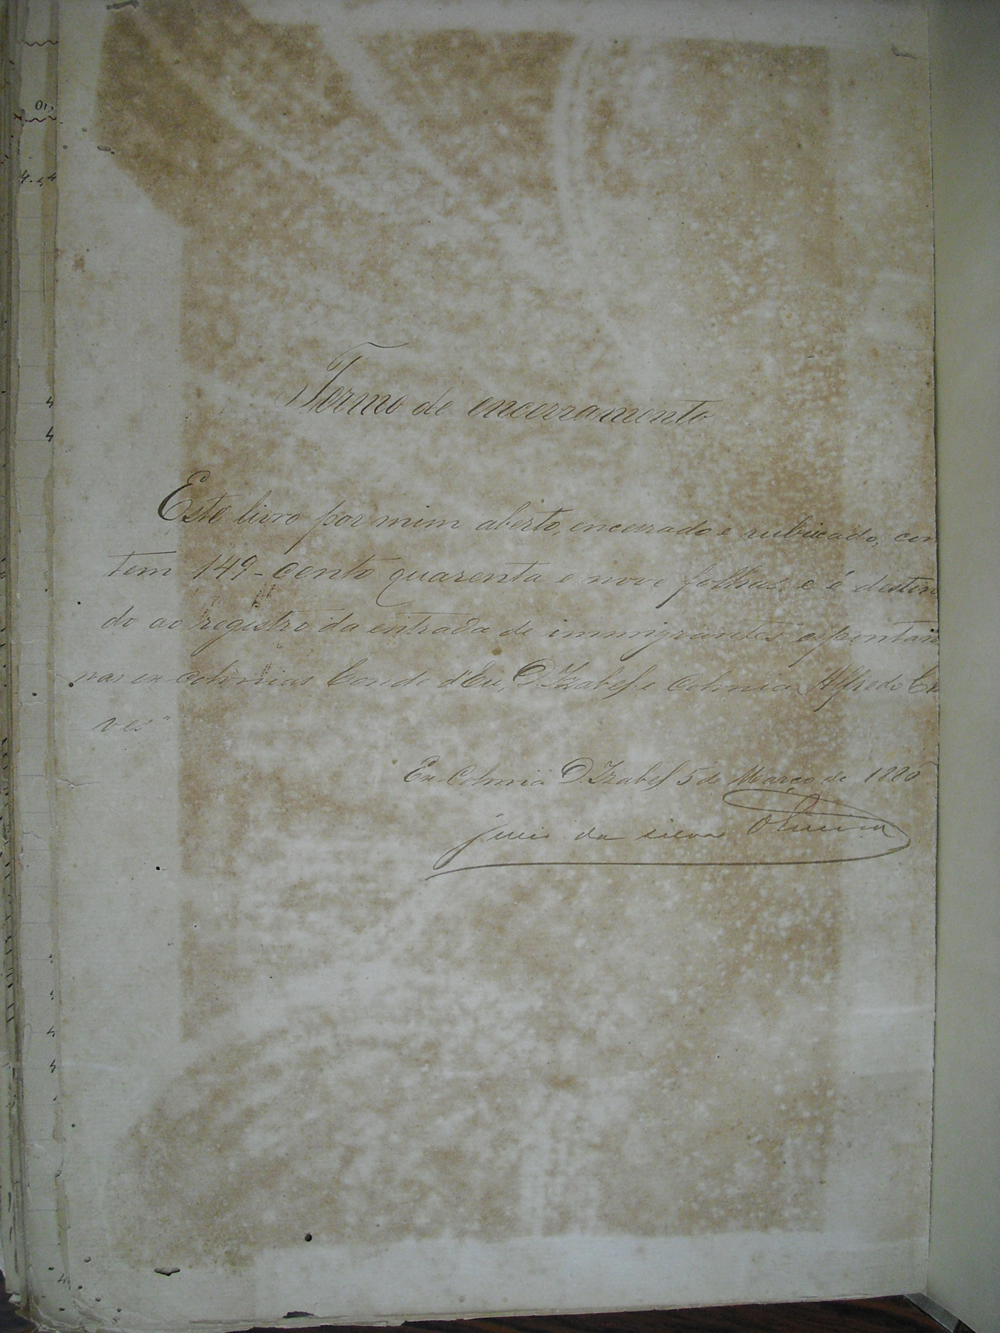 Termo de encerramento
Este livro por mim aberto, encerrado e rubricado, con
tem 149 - cento quarenta e nove folhas e é destin
do ao registro da entrada de immigrantes
nas ex colonias Conde d'Eu, D. Izabel e Colonia Alfredo Cha
ves"
Ex Colonia D Izabel 5 de Março de 1886
da Silva Oliveira